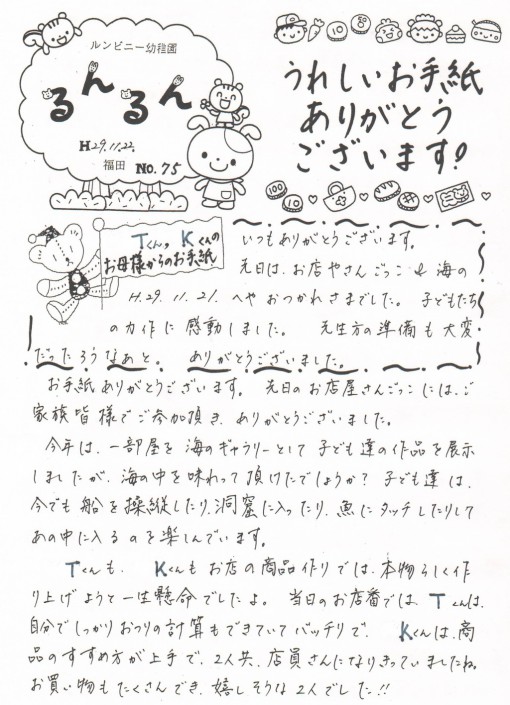 ルンビニー幼稚園
るんるん
H29.11.22.
福田 No.75
うれしいお手紙
ありがとう
ございます!
100
10
10
Tくん、Kくんの
お母様からのお手紙
いつもありがとうございます。
先日は、お店やさんごっこ & 海の
H.29.11.21. へや おつかれさまでした。 子どもたち
の力作に 感動しました。 先生方の準備も大変
だったろうなあと。 ありがとうございました。
お手紙ありがとうございます。 先日のお店屋さんごっこには、ご
家族皆様でご参加頂き、ありがとうございました。
今年は、一部屋を 海のギャラリーとして 子ども達の作品を展示
しましたが、海の中を味わって頂けたでしょうか? 子ども達は、
今でも 船を操縦したり、洞窟に入ったり、魚にタッチしたりして
あの中に入るのを楽しんでいます。
Tくんも、Kくんもお店の商品作りでは、本物らしく作
り上げようと一生懸命でしたよ。 当日のお店番では、Tくんは、
自分でしっかりおつりの計算もできていてバッチリで、Kくんは、商
品のすすめ方が上手で、2人共、店員さんになりきっていましたね。
お買い物もたくさんでき、嬉しそうな2人でした!!